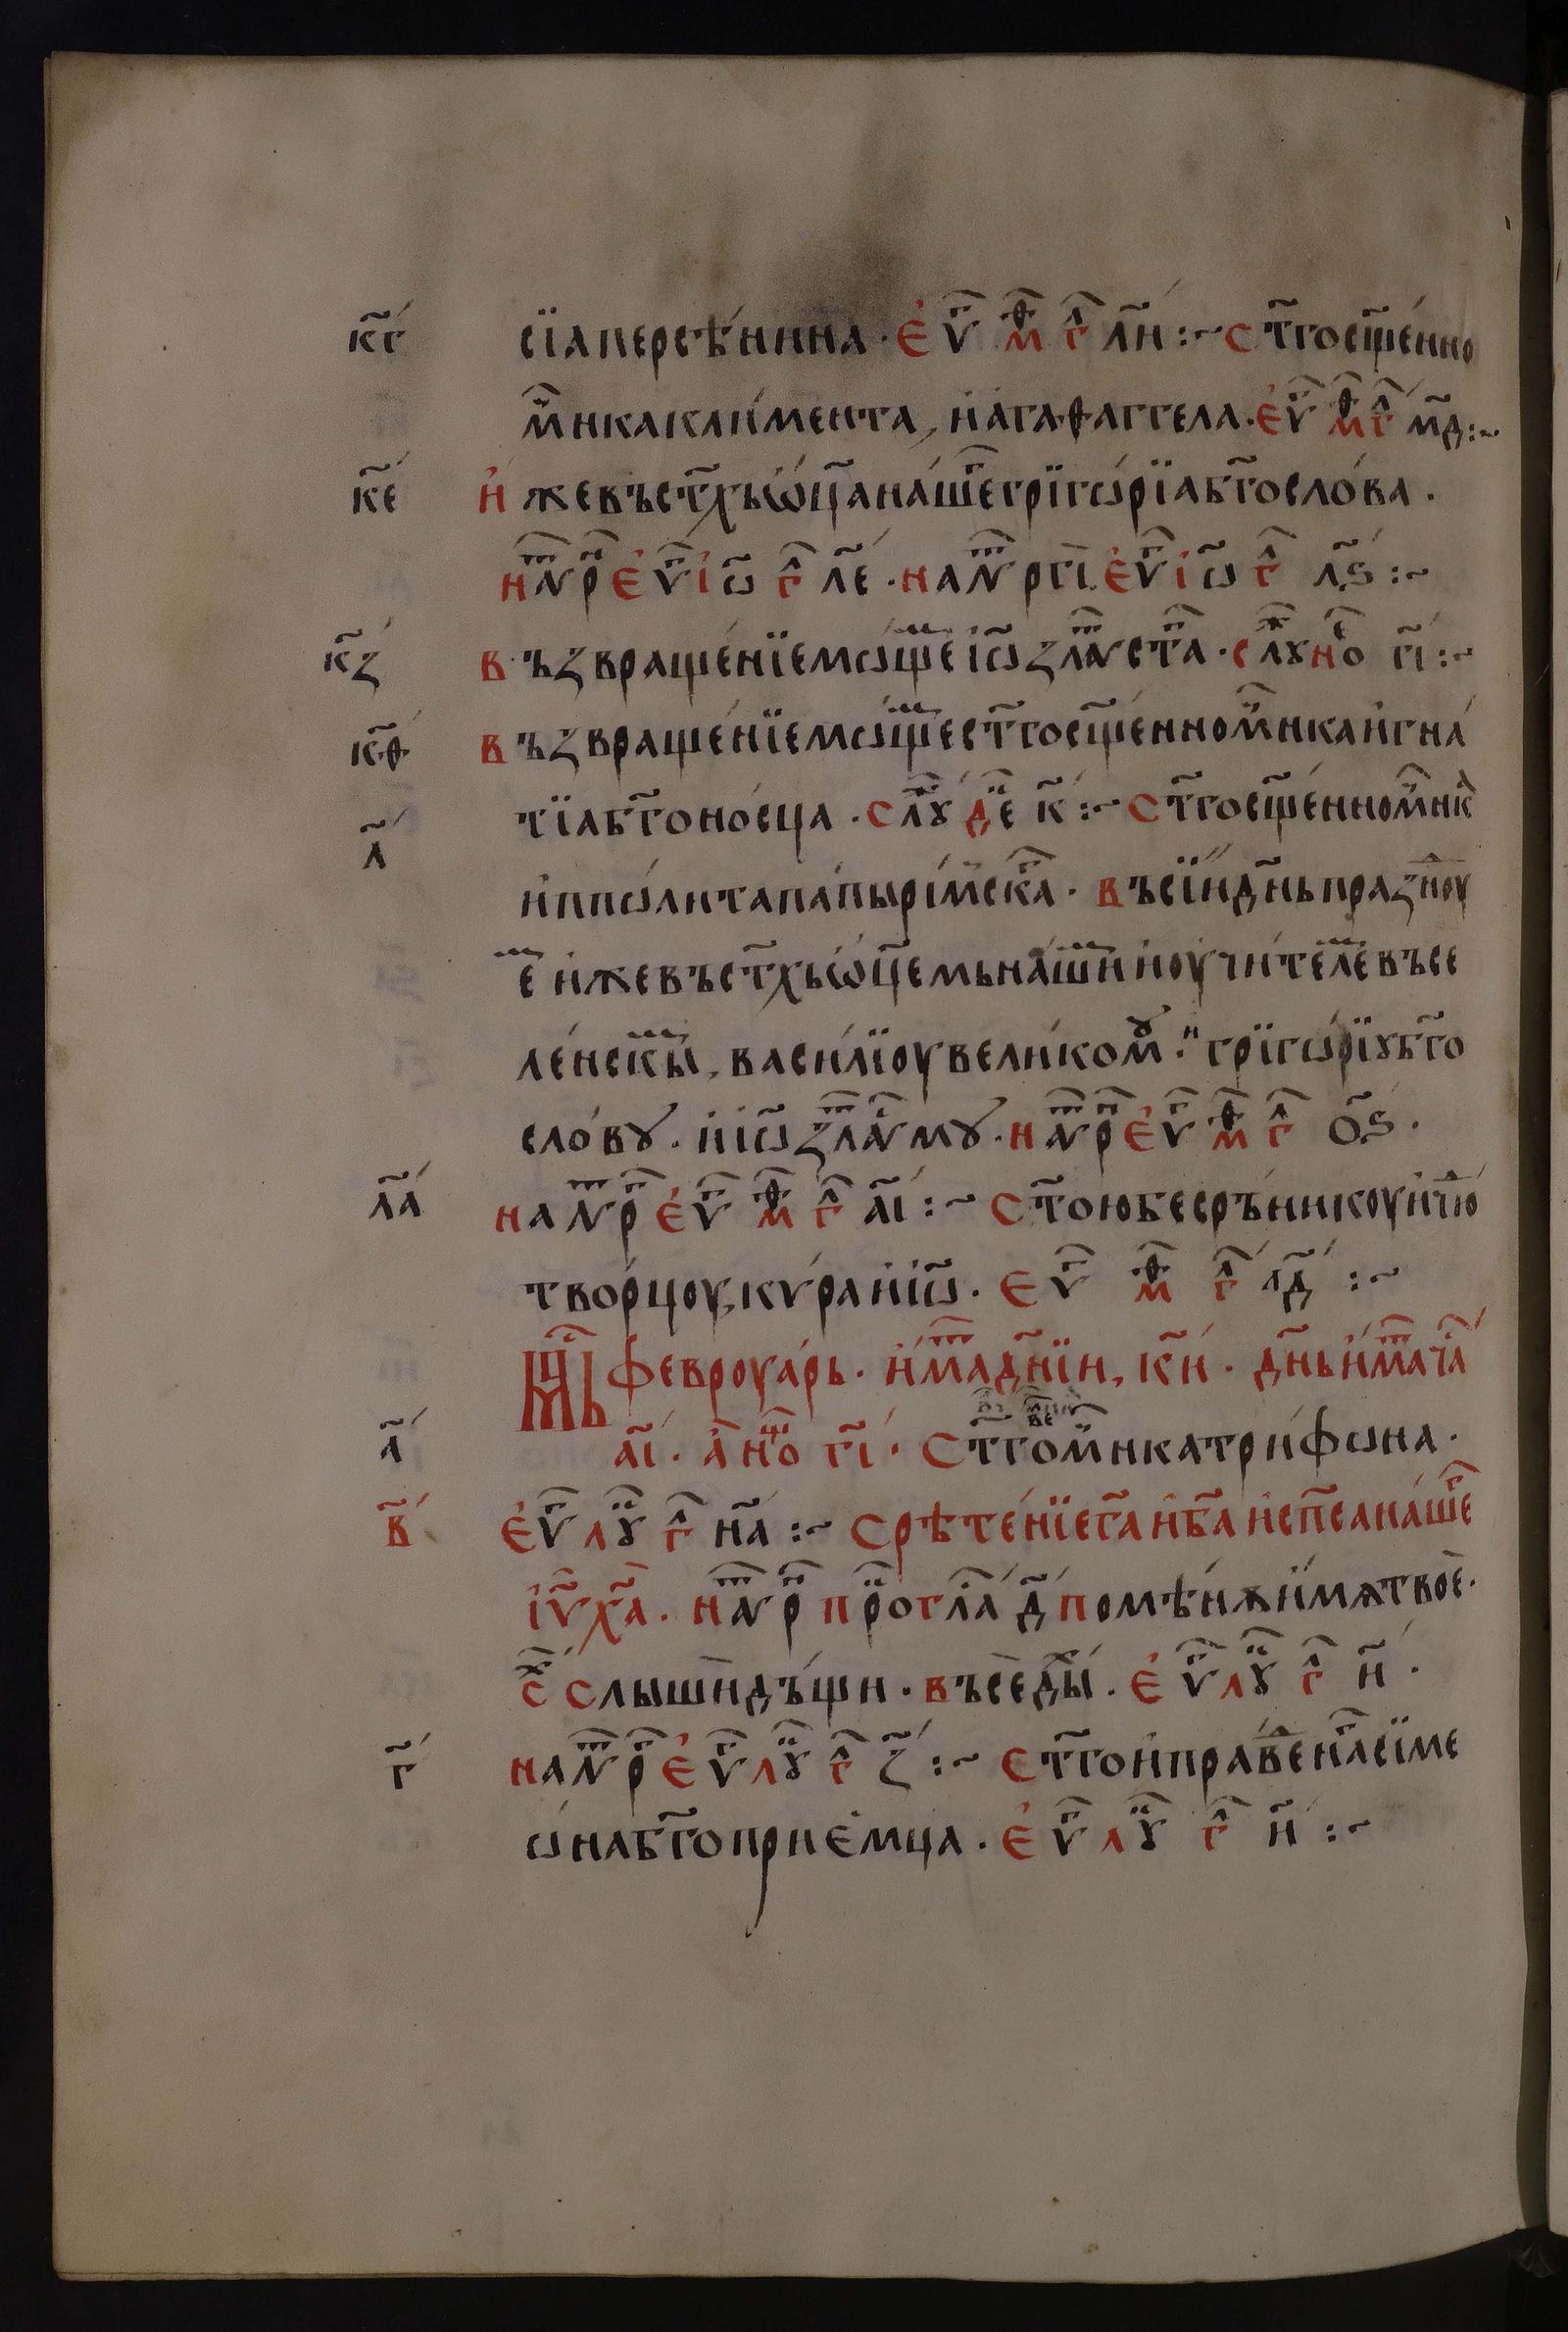 к҃г сїа персѣ́нина · є҆ѵⷢ҇ мⷴ҇ гⷧ҇ л҃и :~ ст҃го сщ҃е́нно
мⷱ҇ника кли́мента, и҆ ага́ѳаггела · є҆ѵⷢ҇ мⷴ҇ гⷧ҇ м҃д :~
к҃е и҆же въ ст҃хь ѡ҆ц҃а на́шеⷢ҇ грїгѡ́рїа бг҃осло́ва ·
наⷮ ѵⷬ҇ⷫ є҆ѵⷢ҇ і҆ѡ҃ гⷧ҇ л҃е · на лⷮѵⷬ҇гі є҆ѵⷢ҇ і҆ѡ҃ гⷧ҇ л҃ѕ :~
к҃з въ́звраще́нїе мѡ́щеⷨ і҆ѡ҃ златоⷭ҇ста · слꙋⷤ ноеⷨ г҃і :~
к҃ѳ въ́звраще́нїе мѡ́щеⷨ ст҃го сщ҃е́нномⷱ҇ника и҆гна́
тїа бг҃оно́сца · слꙋⷤ деⷦ҇ к҃ :~
л҃ ст҃го сщ҃е́нномⷱ҇никⷶ
и҆ппѡли́та па́пы ри́мскаⷢ҇ · въ сїи дн҃ь празноу
еⷨ и҆же въ ст҃хь ѡ҆ц҃емь на́шиⷨ и҆ оучи́телеⷨ въсе
ле́нскыⷨ, васи́лїоу вели́комꙋ · и грїгѡ́рїꙋ бг҃о
сло́вꙋ · и҆ і҆ѡ҃ златоⷭ҇мꙋ · на ѵⷮрⷫ є҆ѵⷢ҇ мⷴ҇ гⷧ҇ о҃ѕ ·
л҃а на лⷮѵⷬ҇ є҆ѵⷢ҇ мⷴ҇ гⷧ҇ а҃і :~ ст҃ою бесрѣ́бникоу и҆ чюⷣ
тво́рцоу, кѵ́ра и҆ і҆ѡ҃ · є҆ѵⷢ҇ мⷴ҇ гⷧ҇ л҃д :~
мцⷭ҇ь феврꙋа́рь · и҆́маⷮ дн҃їи, к҃и · дн҃ь и҆́маⷮ чаⷭ҇
а҃і · а҆ нощⷵ г҃і ·
а҃ ст҃го мⷱ҇ника три́фѡна ·
є҆ѵⷢ҇ лꙋⷦ гⷧ҇ н҃а :~
в҃ срѣте́нїе га҃ и҆ ба҃ и҆ сп҃са на́шеⷢ҇
і҆ѵ҃ ха҃ · на ѵⷮрⷫ проⷦ҇ глаⷭ҇ д҃ помѣнѫ и҆́мѧ твоѐ ·
стⷯ слы́ши дъ́щи · въсеⷦ҇ ды · є҆ѵⷢ҇ лꙋⷦ гⷧ҇ и҃ ·
на лⷮѵⷬ҇ є҆ѵⷢ҇ лꙋⷦ гⷧ҇ з҃ :~
г҃ ст҃го и҆ пра́веⷣнаⷢ҇ сїме
ѡ́на бг҃опри́емца · є҆ѵⷢ҇ лꙋⷦ гⷧ҇ и҃ :~